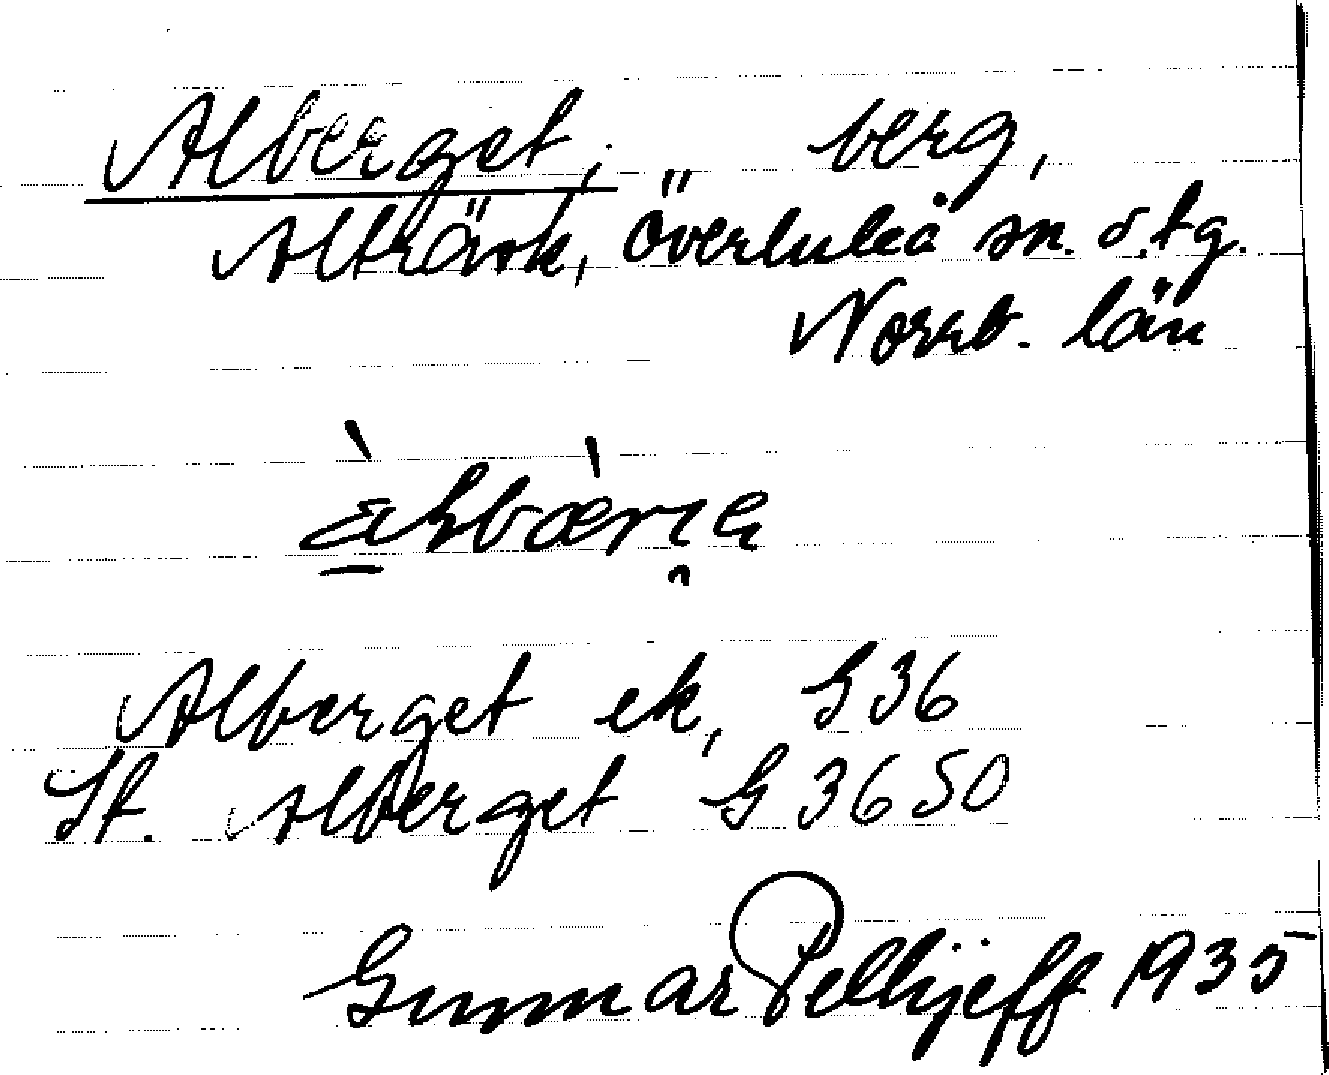 Alberget, berg,
Alträsk, Överluleå sn. o. tg.
Norrb. län
Alberget ek, G36
St. Alberget G3650
Gunnar Pellijeff 1935